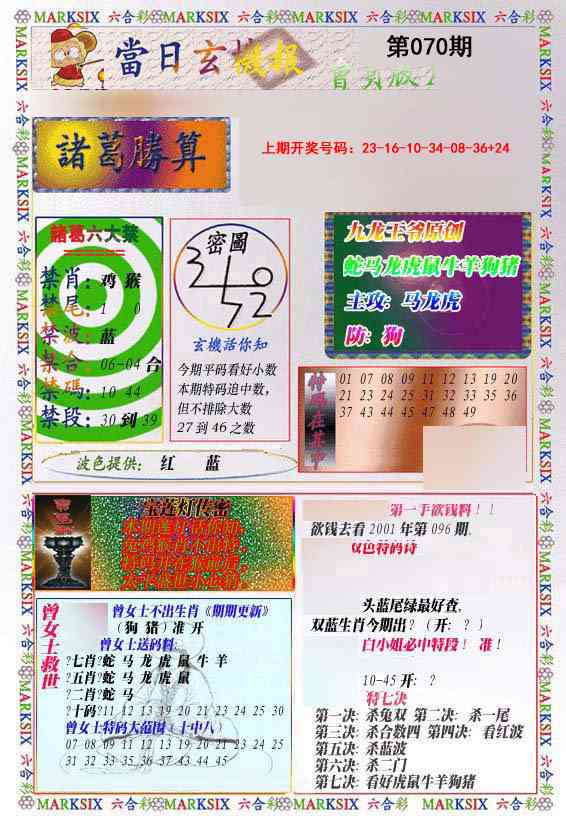 MARKSIX 六合彩MARKSIX 六合彩MARKSIX 六合彩MARKSIX 六合彩MARKSIX
當日玄機報
第070期
諸葛勝算
上期开奖号码：23-16-10-34-08-36+24
諸葛六大禁
禁肖：鸡 猴
禁尾：1 0
禁波：蓝
禁合：06-04 合
禁碼：10 44
禁段：30 到 39
密圖
玄機活你知
今期平码看好小数
本期特码追中数，
但不排除大数
27 到 46 之数
九龙王爷原创
蛇马龙虎鼠牛羊狗猪
主攻：马龙虎
防：狗
特碼在其中
01 07 08 09 11 12 13 19 20
21 23 24 25 31 32 33 35 36
37 43 44 45 47 48 49
波色提供： 红 蓝
宝莲灯传密
第一手欲钱料！！
欲钱去看 2001 年第 096 期.
双色特码诗
头蓝尾绿最好查，
双蓝生肖今期出？（开：？）
白小姐必中特段！ 准！
10-45 开：？
特七决
第一决：杀兔双 第二决：杀一尾
第三决：杀合数四 第四决：看红波
第五决：杀蓝波
第六决：杀二门
第七决：看好虎鼠牛羊狗猪
曾女士救世
曾女士不出生肖《期期更新》
（狗 猪）准 开
曾女士送码料:
?七肖?蛇 马 龙 虎 鼠 牛 羊
?五肖?蛇 马 龙 虎 鼠
?二肖?蛇 马
?十码?11 12 13 19 20 21 23 24 25 30
曾女士特码大范围（十中八）
07 08 09 11 12 13 19 20 21 23 24 25
31 32 33 35 36 43 44 45
MARKSIX 六合彩MARKSIX 六合彩MARKSIX 六合彩MARKSIX 六合彩MARKSIX